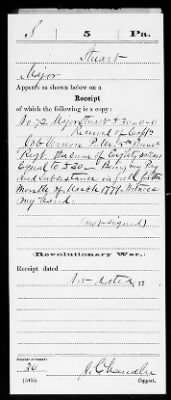 S 5 Pa.
Stuart
Major
Appears as shown below on a
Receipt
of which the following is a copy:
No 72 Major Stuart $30-0-0
Received of Capt
Job Vernon P.M. 5th Penna
Regt. the sum of Eighty dollars
Equal to £30 — Being my Pay
and Subsistance in full for the
Month of March 1777. Witness
my hand.
(not signed)
Revolutionary War.
Receipt dated
Not dated 17
Number of record:
20
J. C. Chandler
Copyist.